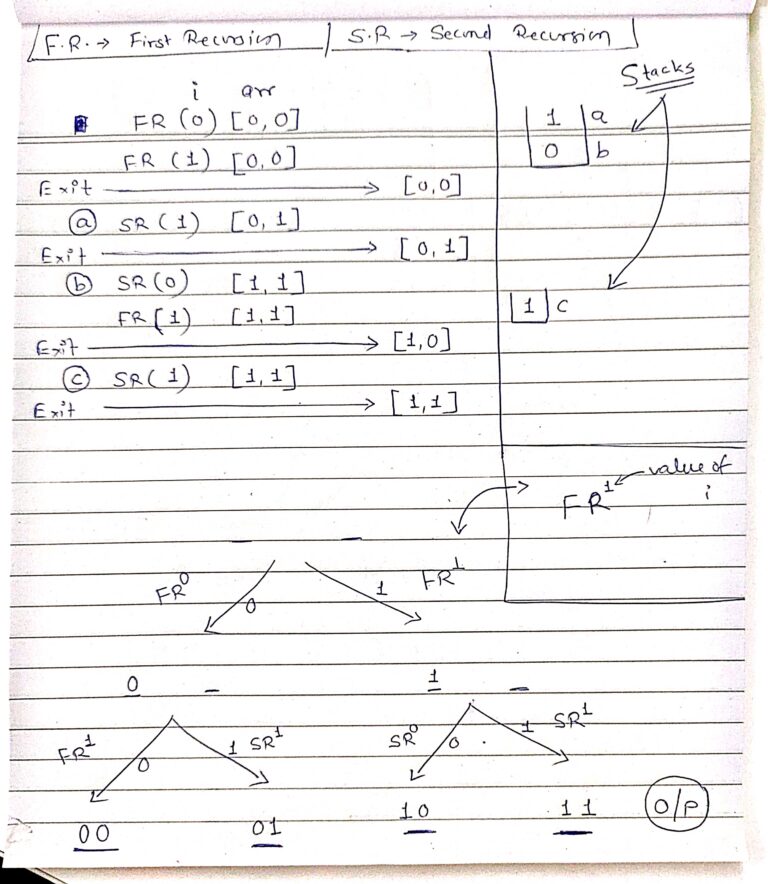 F.R. → First Recursion | S.R → Second Recursion
Stacks
i arr
FR (0) [0,0]
1 a
0 b
FR (1) [0,0]
Exit → [0,0]
ⓐ SR (1) [0,1]
Exit → [0,1]
ⓑ SR (0) [1,1]
1 c
FR (1) [1,1]
Exit → [1,0]
ⓒ SR (1) [1,1]
Exit → [1,1]
FR¹ ← value of i
_ _
FR⁰ 0 1 FR¹
0 _ 1 _
FR¹ 0 1 SR¹ SR⁰ 0 1 SR¹
00 01 10 11 O/P